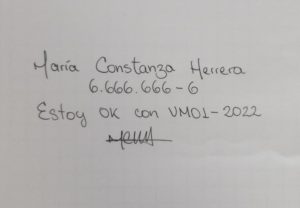 María Constanza Herrera
6.666.666-6
Estoy OK con VM01-2022